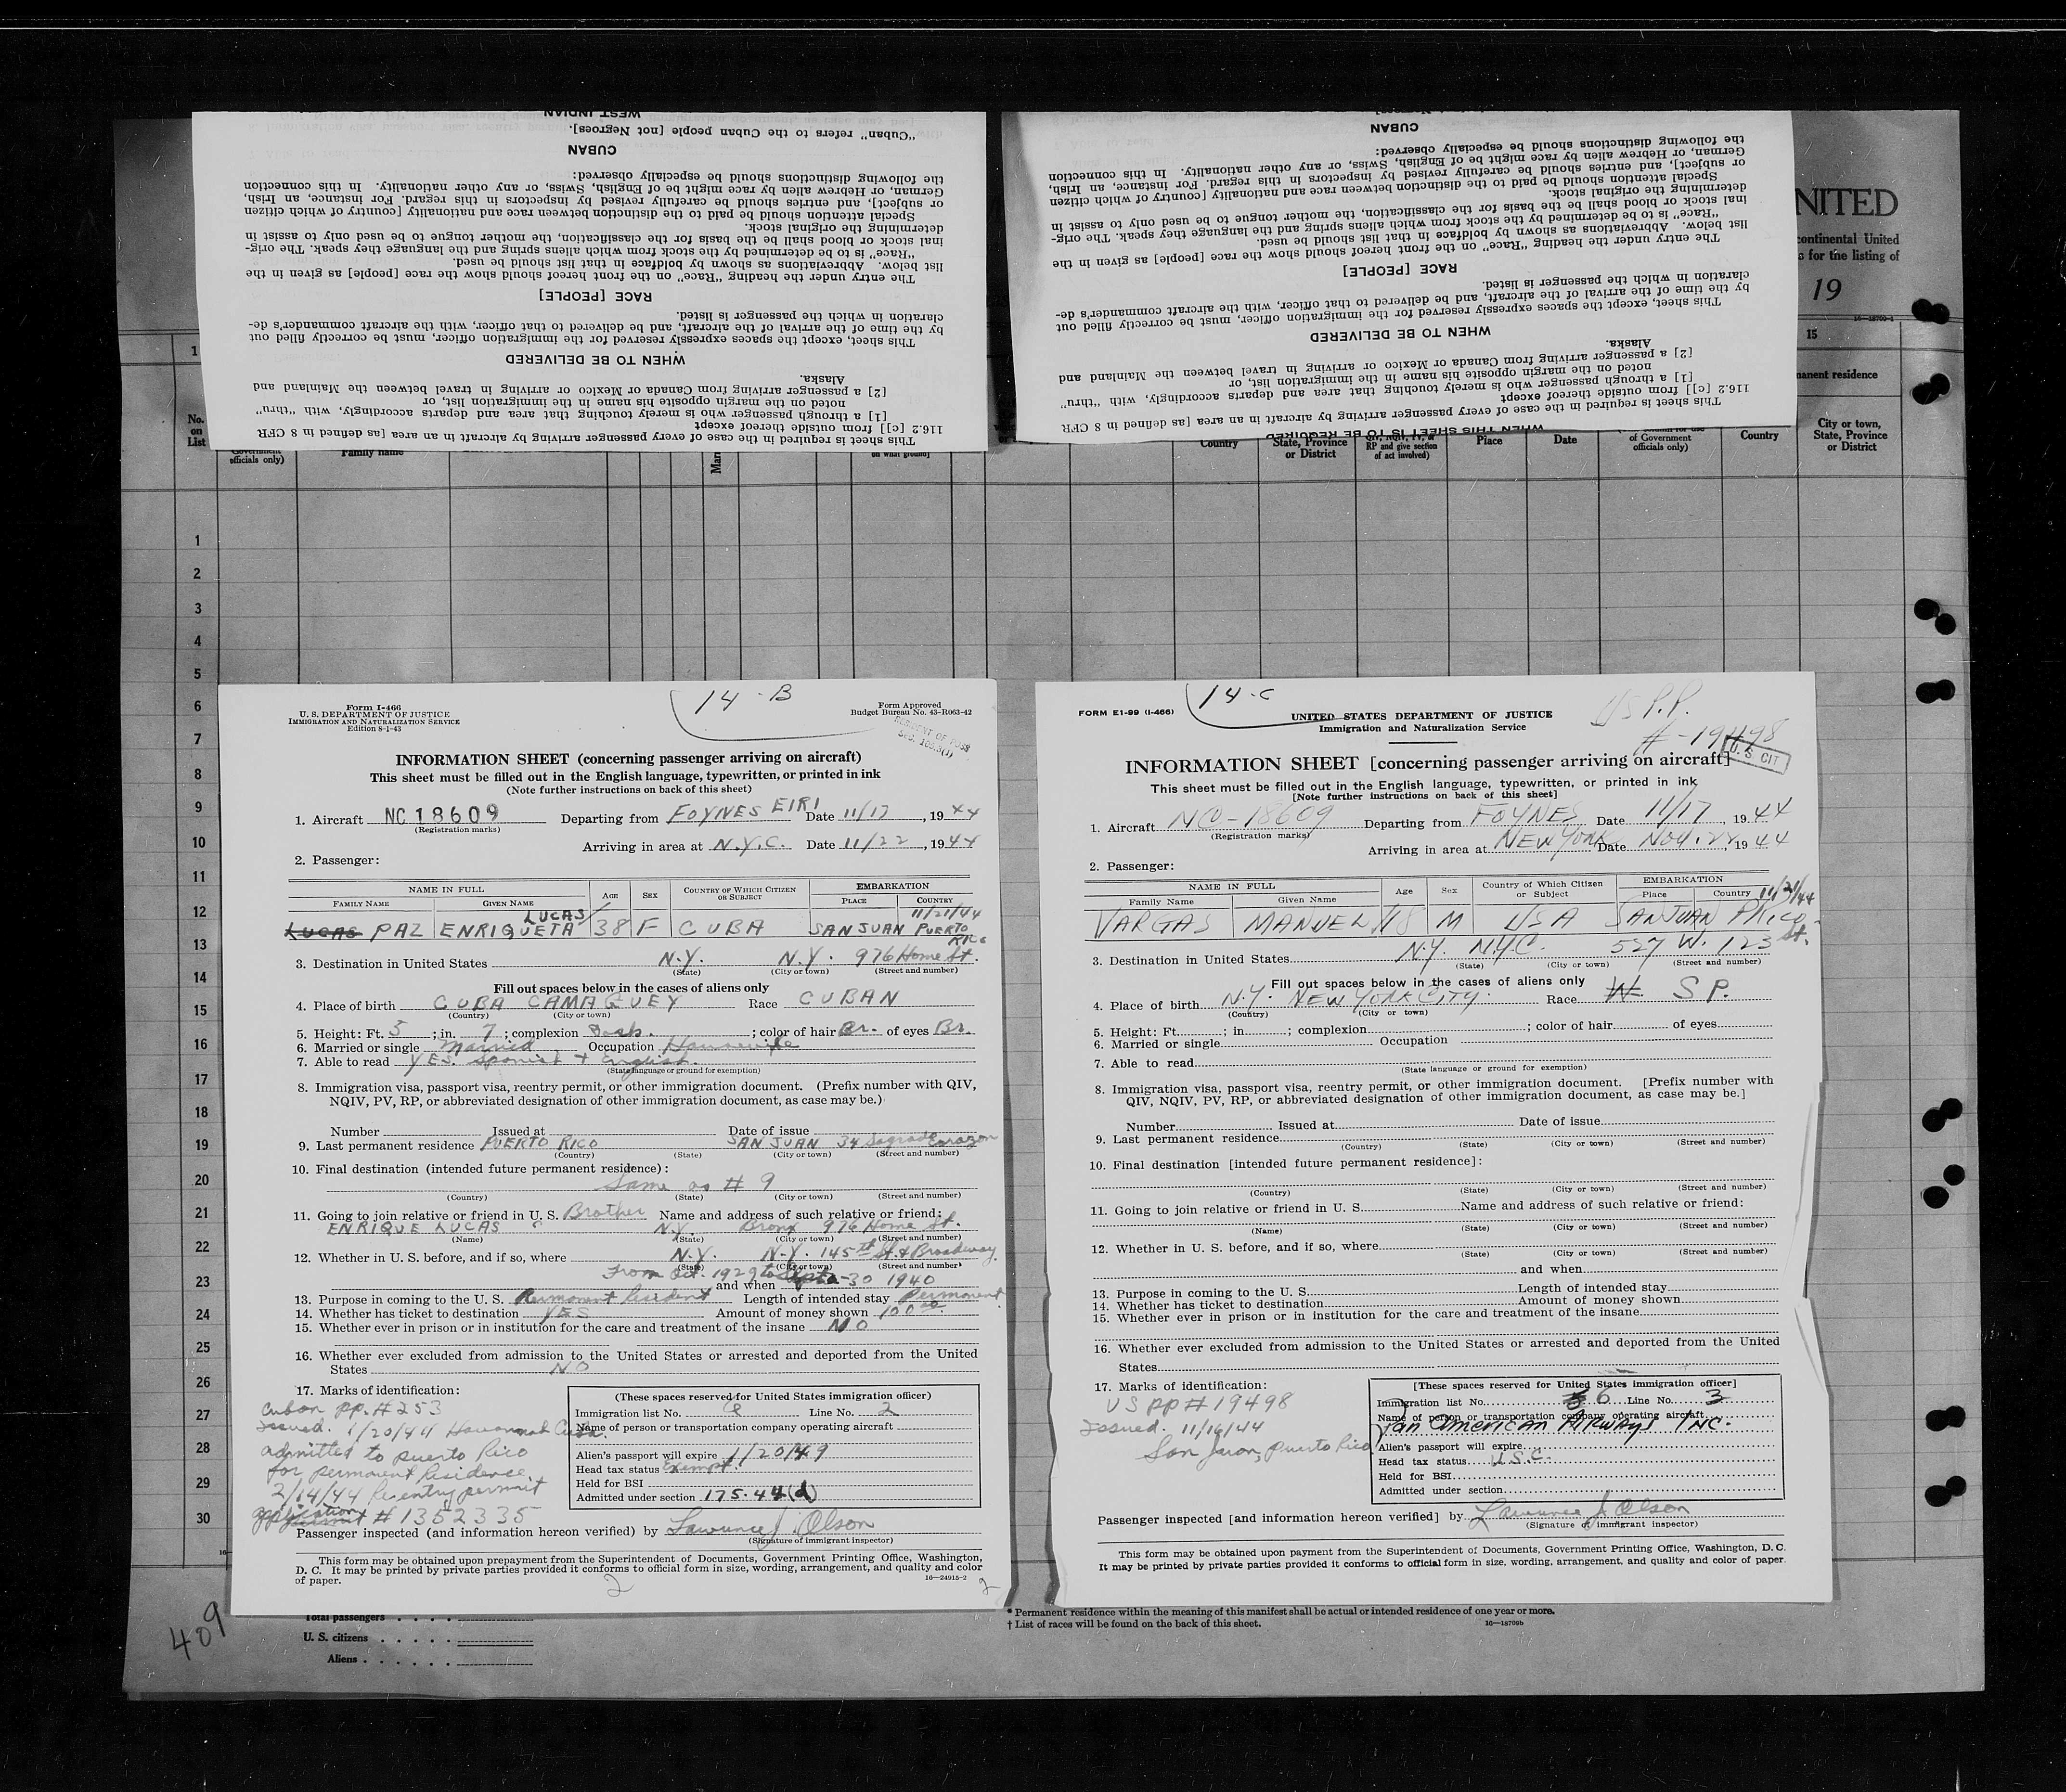 WEST INDIAN
"Cuban" refers to the Cuban people [not Negroes].
CUBAN
the following distinctions should be especially observed:
German, or Hebrew alien by race might be of English, Swiss, or any other nationality. In this connection
or subject], and entries should be carefully revised by inspectors in this regard. For instance, an Irish,
Special attention should be paid to the distinction between race and nationality [country of which citizen
determining the original stock.
inal stock or blood shall be the basis for the classification, the mother tongue to be used only to assist in
"Race" is to be determined by the stock from which aliens spring and the language they speak. The orig-
list below. Abbreviations as shown by boldface in that list should be used.
The entry under the heading "Race" on the front hereof should show the race [people] as given in the
RACE [PEOPLE]
claration in which the passenger is listed.
by the time of the arrival of the aircraft, and be delivered to that officer, with the aircraft commander's de-
This sheet, except the spaces expressly reserved for the immigration officer, must be correctly filled out
WHEN TO BE DELIVERED
Alaska.
[2] a passenger arriving from Canada or Mexico or arriving in travel between the Mainland and
noted on the margin opposite his name in the immigration list, or
[1] a through passenger who is merely touching that area and departs accordingly, with "thru"
116.2 [c]] from outside thereof except
This sheet is required in the case of every passenger arriving by aircraft in an area [as defined in 8 CFR
CUBAN
the following distinctions should be especially observed:
German, or Hebrew alien by race might be of English, Swiss, or any other nationality. In this connection
or subject], and entries should be carefully revised by inspectors in this regard. For instance, an Irish,
Special attention should be paid to the distinction between race and nationality [country of which citizen
determining the original stock.
inal stock or blood shall be the basis for the classification, the mother tongue to be used only to assist in
"Race" is to be determined by the stock from which aliens spring and the language they speak. The orig-
list below. Abbreviations as shown by boldface in that list should be used.
The entry under the heading "Race" on the front hereof should show the race [people] as given in the
RACE [PEOPLE]
claration in which the passenger is listed.
by the time of the arrival of the aircraft, and be delivered to that officer, with the aircraft commander's de-
This sheet, except the spaces expressly reserved for the immigration officer, must be correctly filled out
WHEN TO BE DELIVERED
Alaska.
[2] a passenger arriving from Canada or Mexico or arriving in travel between the Mainland and
noted on the margin opposite his name in the immigration list, or
[1] a through passenger who is merely touching that area and departs accordingly, with "thru"
116.2 [c]] from outside thereof except
This sheet is required in the case of every passenger arriving by aircraft in an area [as defined in 8 CFR
WHEN THIS SHEET IS TO BE REQUIRED
NITED
continental United
a for the listing of
19
16—18709-1
1
15
manent residence
No.
on
List
Government
officials only)
Family name
Mar
on what ground]
Country
State, Province
or District
RP and give section
of act involved)
Place
Date
of Government
officials only)
Country
City or town,
State, Province
or District
1
2
3
4
5
6
7
8
9
10
11
12
13
14
15
16
17
18
19
20
21
22
23
24
25
26
27
28
29
30
14-B
Form I-466
U. S. DEPARTMENT OF JUSTICE
IMMIGRATION AND NATURALIZATION SERVICE
Edition 8-1-43
Form Approved
Budget Bureau No. 43-R063-42
INFORMATION SHEET (concerning passenger arriving on aircraft)
This sheet must be filled out in the English language, typewritten, or printed in ink
(Note further instructions on back of this sheet)
1. Aircraft NC18609 Departing from FOYNES EIRI Date 11/17, 1944
(Registration marks)
Arriving in area at N.Y.C. Date 11/22, 1944
2. Passenger:
NAME IN FULL AGE SEX COUNTRY OF WHICH CITIZEN OR SUBJECT EMBARKATION
FAMILY NAME GIVEN NAME PLACE COUNTRY
LUCAS 11/21/44
LUCAS PAZ ENRIQUETA 38 F CUBA SAN JUAN PUERTO RICO
3. Destination in United States N.Y. N.Y. 976 Home St.
(State) (City or town) (Street and number)
Fill out spaces below in the cases of aliens only
4. Place of birth CUBA CAMAGUEY Race CUBAN
(Country) (City or town)
5. Height: Ft. 5; in. 7; complexion Dark.; color of hair Br. of eyes Br.
6. Married or single Married Occupation Housewife
7. Able to read YES. Spanist + English.
(State language or ground for exemption)
8. Immigration visa, passport visa, reentry permit, or other immigration document. (Prefix number with QIV,
NQIV, PV, RP, or abbreviated designation of other immigration document, as case may be.)
Number Issued at Date of issue
9. Last permanent residence PUERTO RICO SAN JUAN 34 Sagrado Corazon
(Country) (State) (City or town) (Street and number)
10. Final destination (intended future permanent residence):
Same as # 9
(Country) (State) (City or town) (Street and number)
11. Going to join relative or friend in U. S. Brother Name and address of such relative or friend:
ENRIQUE LUCAS N.Y. Bronx 976 Home St.
(Name) (State) (City or town) (Street and number)
12. Whether in U. S. before, and if so, where N.Y. N.Y. 145th St. & Broadway.
(State) (City or town) (Street and number)
From Oct. 1929 to Sept. 30 1940
and when
13. Purpose in coming to the U. S. Permanent Resident Length of intended stay Permanent
14. Whether has ticket to destination YES Amount of money shown 100.00
15. Whether ever in prison or in institution for the care and treatment of the insane NO
16. Whether ever excluded from admission to the United States or arrested and deported from the United
States NO
17. Marks of identification:
Cuban pp. # 253
Issued. 1/20/44 Havannah Cuba.
admitted to puerto Rico
for permanent Residence.
2/14/44 Re entry permit
application # 1352335
(These spaces reserved for United States immigration officer)
Immigration list No. 6 Line No. 2
Name of person or transportation company operating aircraft
Alien's passport will expire 1/20/49
Head tax status Exempt.
Held for BSI
Admitted under section 175.44(d)
Passenger inspected (and information hereon verified) by Lawrence J. Olson
(Signature of immigrant inspector)
This form may be obtained upon prepayment from the Superintendent of Documents, Government Printing Office, Washington,
D. C. It may be printed by private parties provided it conforms to official form in size, wording, arrangement, and quality and color
of paper.
16—24915-2
2
2
14-C
FORM E1-99 (I-466)
UNITED STATES DEPARTMENT OF JUSTICE
Immigration and Naturalization Service
US P.P.
#-19498
U. S. CIT
INFORMATION SHEET [concerning passenger arriving on aircraft]
This sheet must be filled out in the English language, typewritten, or printed in ink
[Note further instructions on back of this sheet]
1. Aircraft NC-18609 Departing from FOYNES Date 11/17, 1944
(Registration marks)
Arriving in area at NEW YORK Date NOV. 22, 1944
2. Passenger:
NAME IN FULL Age Sex Country of Which Citizen or Subject EMBARKATION
Family Name Given Name Place Country 11/21/44
VARGAS MANUEL 18 M USA SAN JUAN P Rico
3. Destination in United States N.Y. N.Y.C. 527 W. 123 St.
(State) (City or town) (Street and number)
Fill out spaces below in the cases of aliens only
4. Place of birth N.Y. NEW YORK CITY. Race W SP.
(Country) (City or town)
5. Height: Ft.; in; complexion; color of hair of eyes
6. Married or single Occupation
7. Able to read
(State language or ground for exemption)
8. Immigration visa, passport visa, reentry permit, or other immigration document. [Prefix number with
QIV, NQIV, PV, RP, or abbreviated designation of other immigration document, as case may be.]
Number Issued at Date of issue
9. Last permanent residence
(Country) (State) (City or town) (Street and number)
10. Final destination [intended future permanent residence]:
(Country) (State) (City or town) (Street and number)
11. Going to join relative or friend in U. S. Name and address of such relative or friend:
(Name) (State) (City or town) (Street and number)
12. Whether in U. S. before, and if so, where
(State) (City or town) (Street and number)
and when
13. Purpose in coming to the U. S. Length of intended stay
14. Whether has ticket to destination Amount of money shown
15. Whether ever in prison or in institution for the care and treatment of the insane
16. Whether ever excluded from admission to the United States or arrested and deported from the United
States
17. Marks of identification:
US pp # 19498
Issued. 11/16/44
San Juan, Puerto Rico
[These spaces reserved for United States immigration officer]
Immigration list No. 6 Line No. 3
Name of person or transportation company operating aircraft
Pan American Airways Inc.
Alien's passport will expire
Head tax status U.S.C.
Held for BSI
Admitted under section
Passenger inspected [and information hereon verified] by Lawrence J. Olson
(Signature of immigrant inspector)
This form may be obtained upon payment from the Superintendent of Documents, Government Printing Office, Washington, D. C.
It may be printed by private parties provided it conforms to official form in size, wording, arrangement, and quality and color of paper.
409
Total passengers
U. S. citizens
Aliens
* Permanent residence within the meaning of this manifest shall be actual or intended residence of one year or more.
† List of races will be found on the back of this sheet.
16—18709b